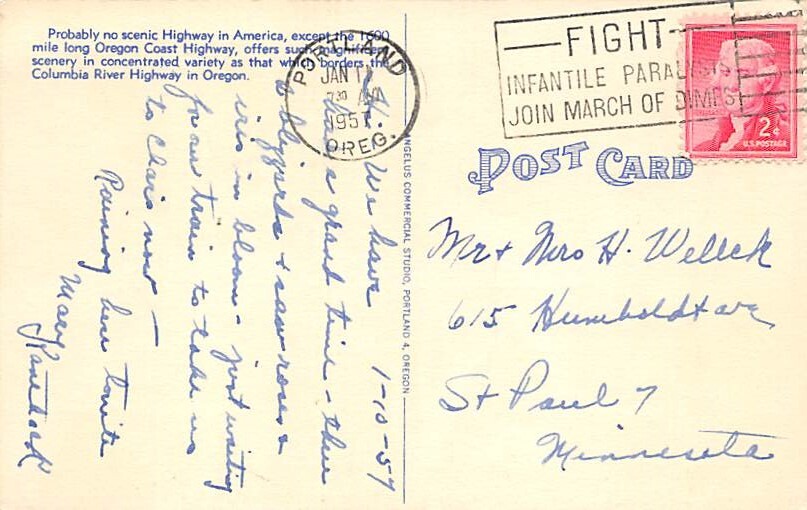 Probably no scenic Highway in America, except the 1600
mile long Oregon Coast Highway, offers such magnificent
scenery in concentrated variety as that which borders the
Columbia River Highway in Oregon.
PORTLAND
JAN 1
7 30 PM
1957
OREG.
FIGHT
INFANTILE PARALYSIS
JOIN MARCH OF DIMES
2¢
U.S. POSTAGE
POST CARD
ANGELUS COMMERCIAL STUDIO, PORTLAND 4, OREGON
1-10-57
H. We have
had a grand time - thru
blizzards & saw roses &
iris in bloom - just waiting
for our train to take us
to Chais now —
Raining here tonite
Mary
Mr + Mrs H. Welleck
615 Humboldt ave
St Paul 7
Minnesota